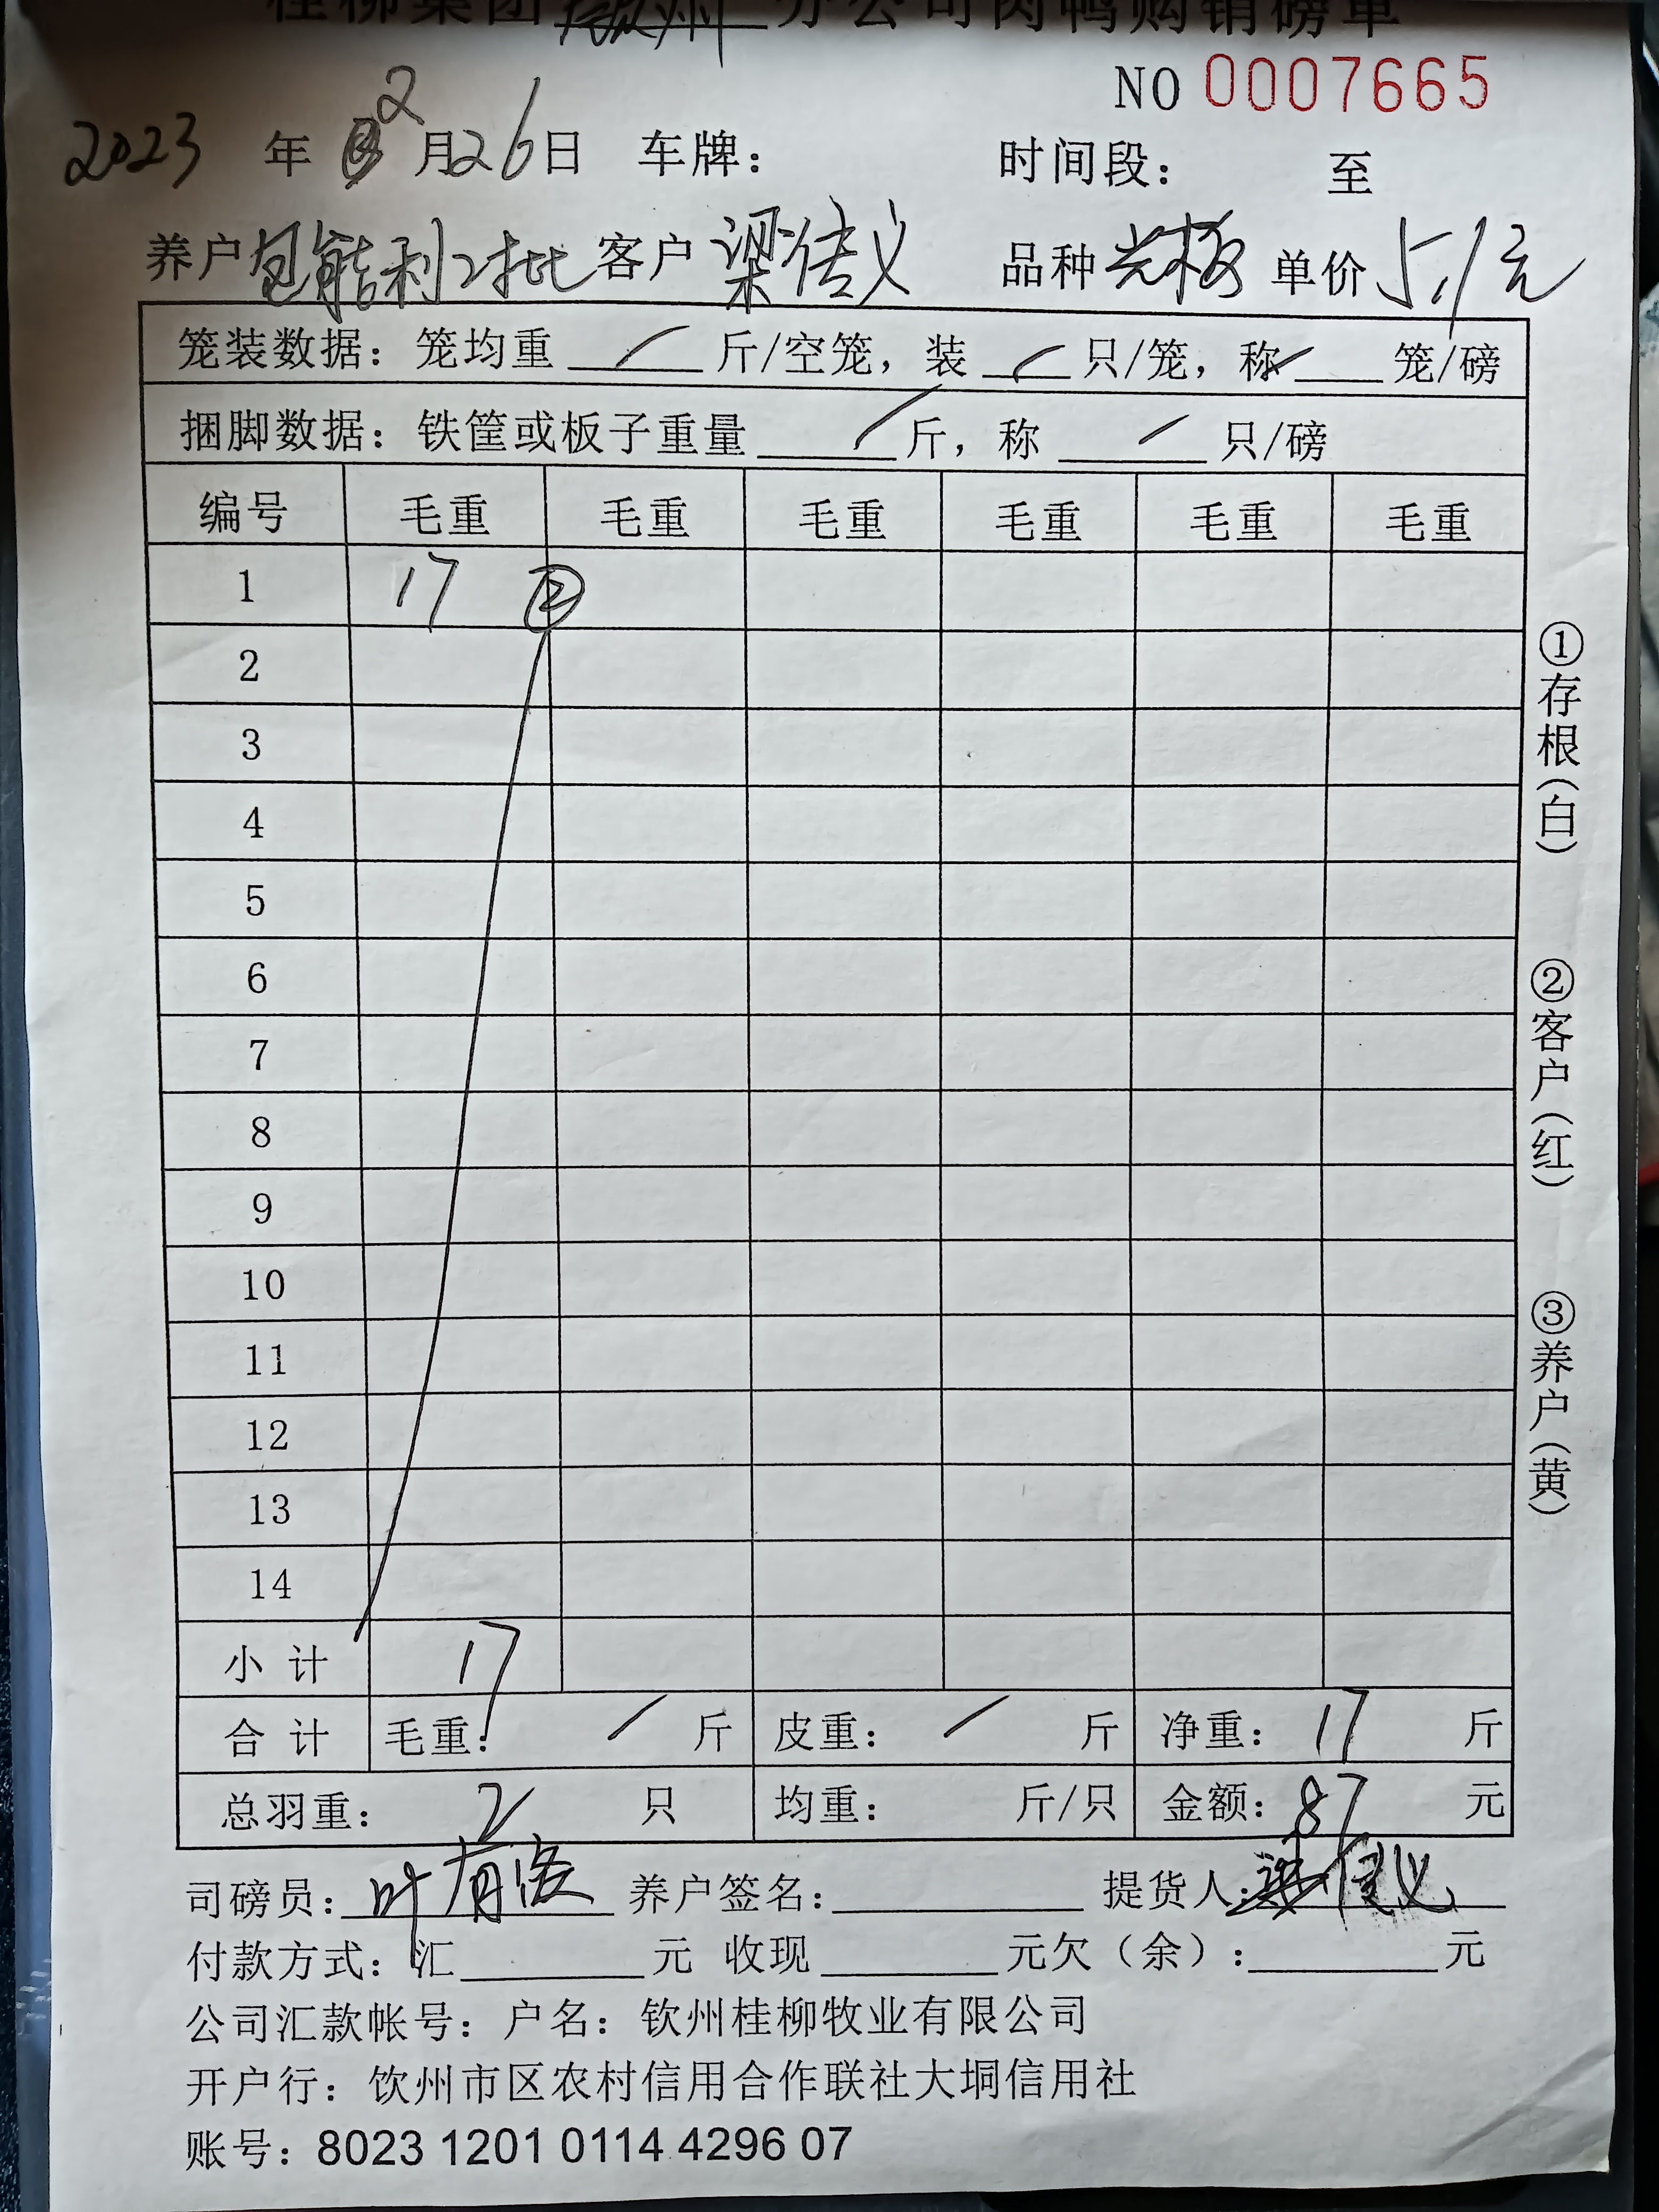 桂柳集团钦州分公司肉鸭购销磅单
NO 0007665
2023 年 2 月 26 日 车牌： 时间段： 至
养户 包能利2批 客户 梁信义 品种 光板 单价 5.1元
笼装数据：笼均重 / 斤/空笼，装 / 只/笼，称 / 笼/磅
捆脚数据：铁筐或板子重量 / 斤，称 / 只/磅
编号 毛重 毛重 毛重 毛重 毛重 毛重
1 17 ②
2
3
4
5
6
7
8
9
10
11
12
13
14
小计 17
合计 毛重： / 斤 皮重： / 斤 净重：17 斤
总羽重： 2 只 均重： 斤/只 金额：87 元
司磅员：叶有 养户签名： 提货人：梁信义
付款方式：汇 元 收现 元欠（余）： 元
公司汇款帐号：户名：钦州桂柳牧业有限公司
开户行：饮州市区农村信用合作联社大垌信用社
账号：8023 1201 0114 4296 07
①存根（白）
②客户（红）
③养户（黄）